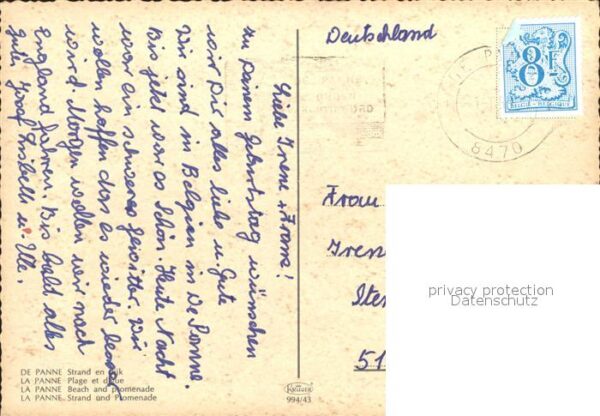 Liebe Irene + Franz!
Zu Deinem Geburtstag wünschen
wir Dir alles liebe u. Gute
Wir sind in Belgien in De Panne.
Bis jetzt war es Schön. Heute Nacht
war ein schweres gewitter. Wir
wollen hoffen das es wieder besser
wird. Morgen wollen wir nach
England fahren. Bis bald alles
Gute Josef Lisbeth u. Ulle.
Deutschland
8F
BELGIË - BELGIQUE
8470
Frau
Iren
Ste
51
privacy protection
Datenschutz
DE PANNE Strand en dijk
LA PANNE Plage et digue
LA PANNE Beach and promenade
LA PANNE Strand und Promenade
KRÜGER
994/43